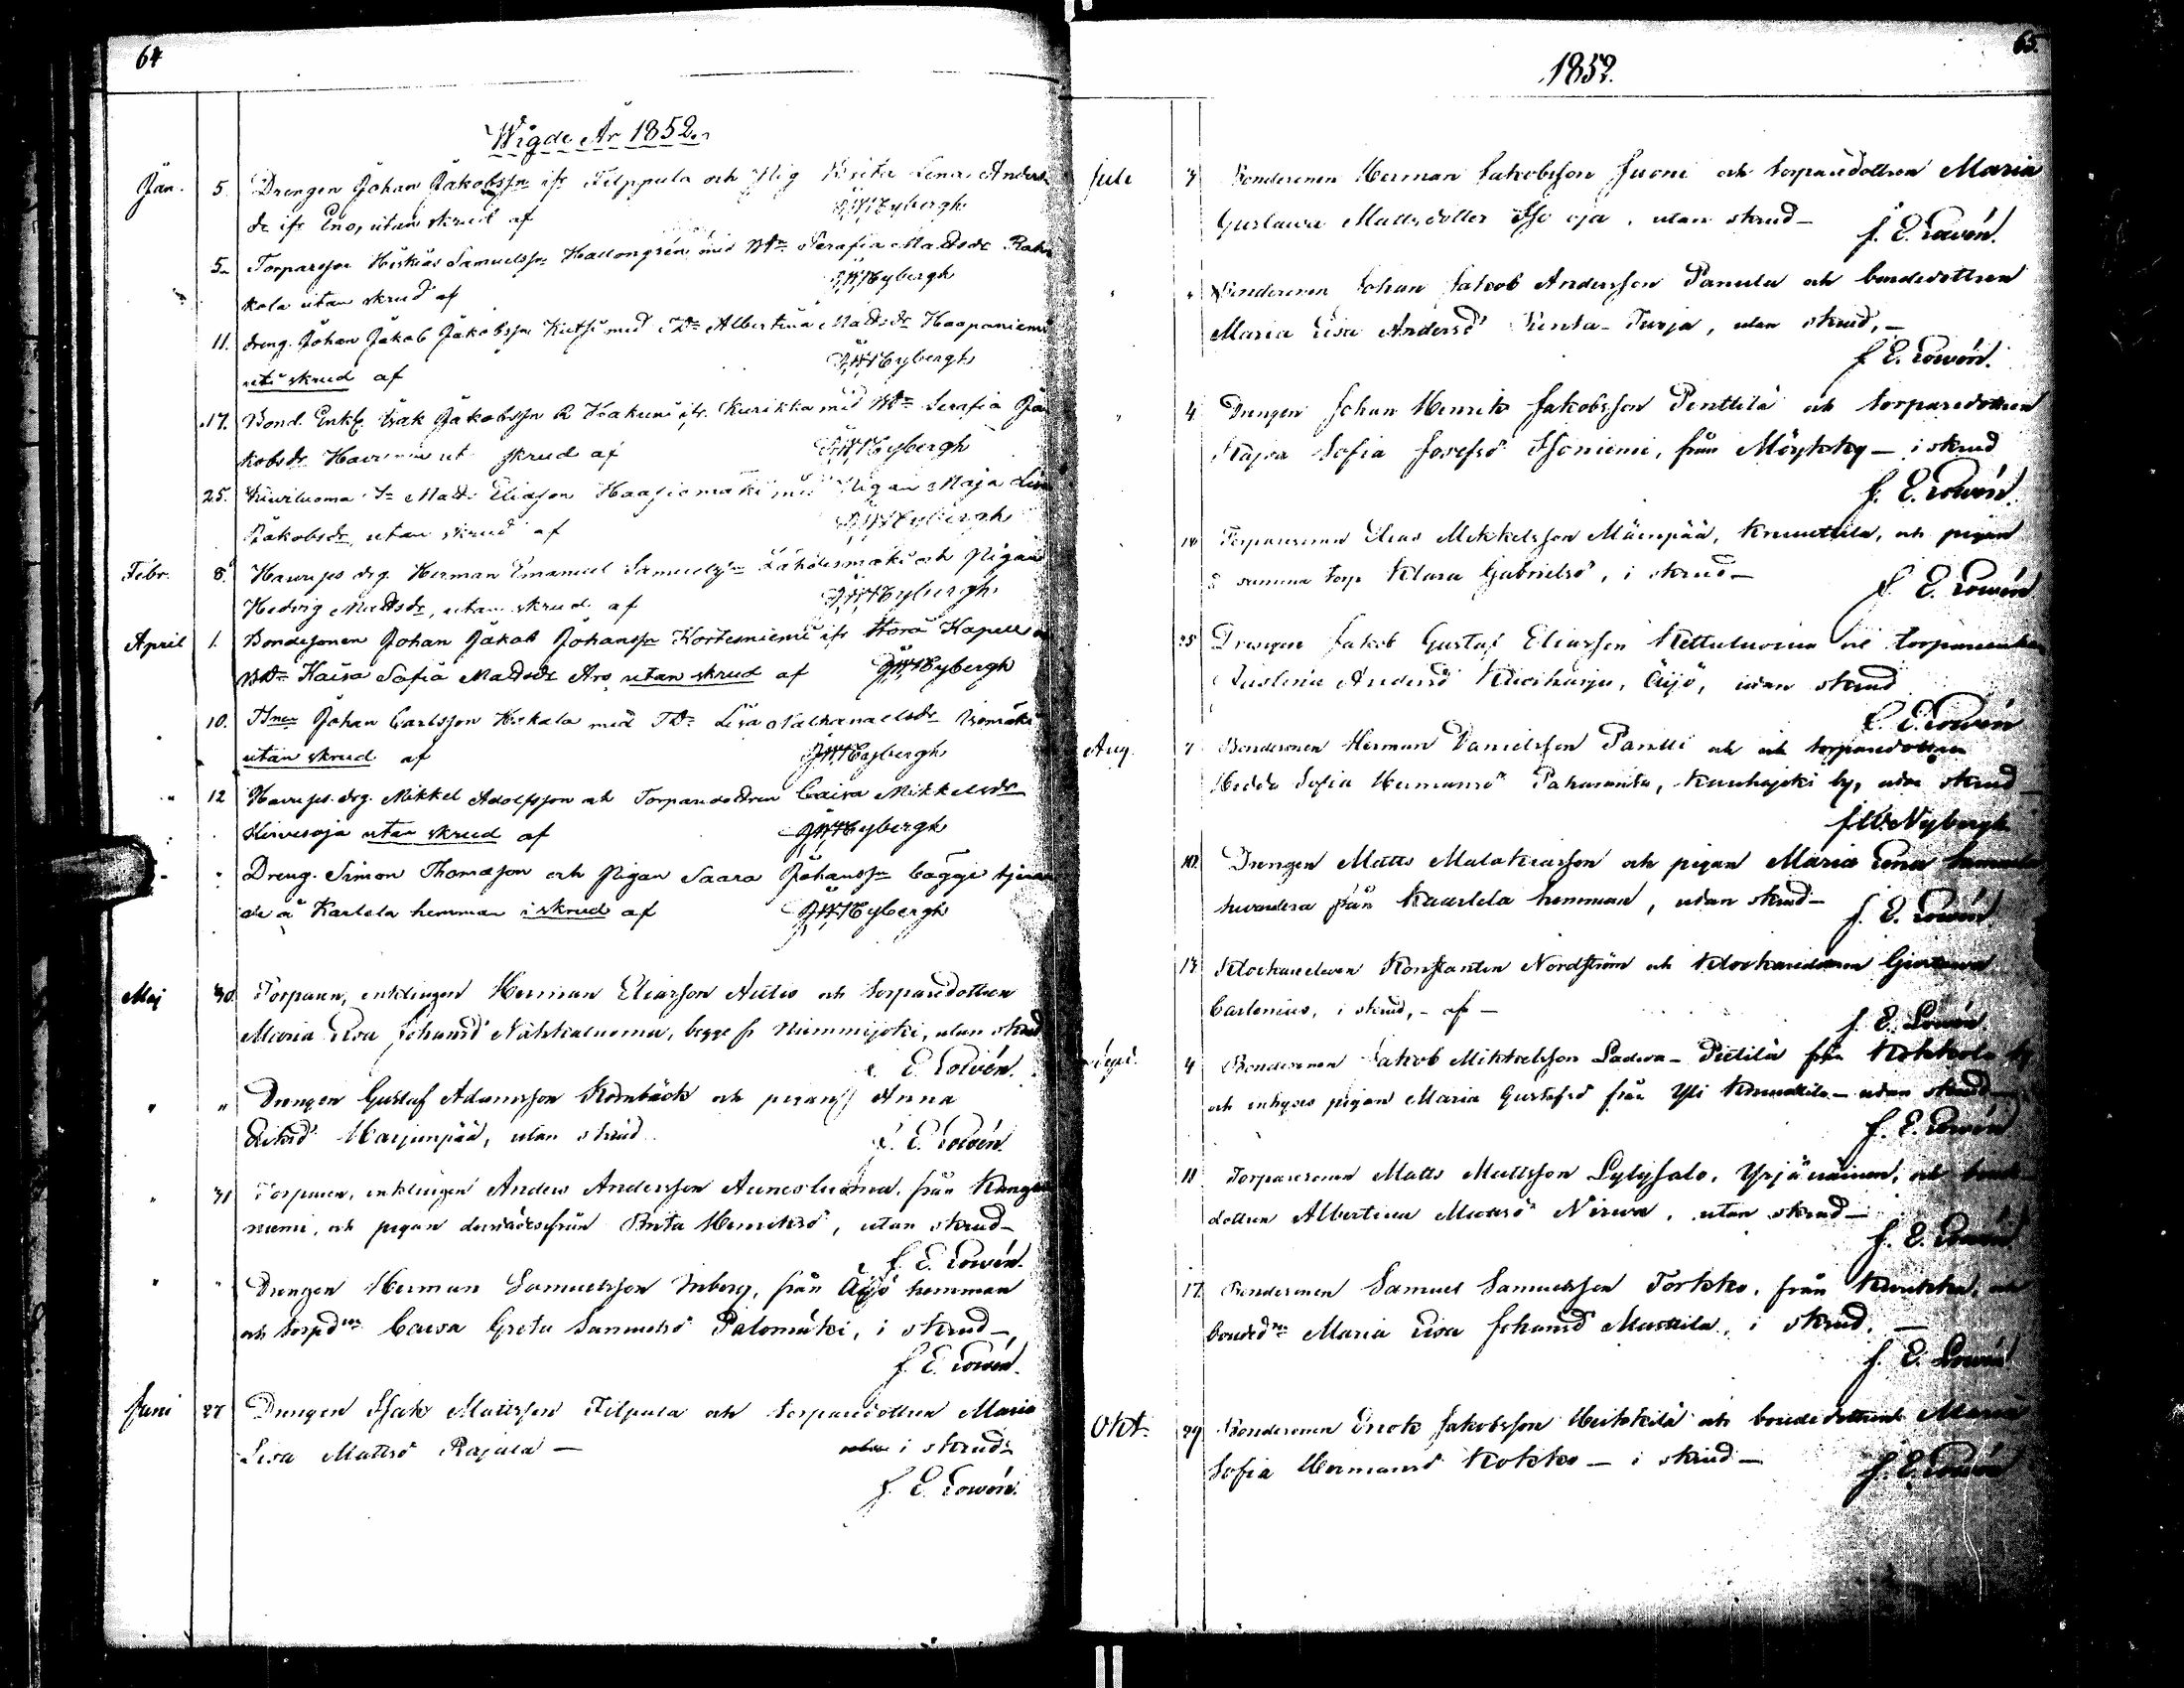 64
Wigde År 1852.
Jan. 5. Drengen Johan Jakobsson ifr Filppula och Pig Brita Lena Anders
dr ifr Eno, utan skrud af J.W. Nybergh
5. Torparson Hiskias Samuelssn med Bd Serafia Mattsdr
kola utan skrud af J.W. Nybergh
11. dreng. Johan Jakob Jakobsson med Td Albertina Mattsdr Haapaniemi
uti skrud af J.W. Nybergh
17. Bond. Enkl. Isak Jakobsson ifr. Kurikka med Bd Serafia Ja
kobsdr skrud af J.W. Nybergh
25. Matts Eliasson Haapiomäki med Pigan Maja Lisa
Jakobsdr, utan skrud af J.W. Nybergh
Febr. 8. drg. Herman Emanuel Samuelsson Lähdesmäki och Pigan
Hedvig Mattsdr, utan skrud af J.W. Nybergh
April 1. Bondesonen Johan Jakob Johansson Kortesniemi ifr Storå Kapell
Bd Kaisa Sofia Mattsdr Aro utan skrud af J.W. Nybergh
10. Johan Carlsson med Td Lisa Nathanaelsdr
utan skrud af J.W. Nybergh
" 12 drg. Mikkel Adolfsson och Torparedottren Caisa Mikkelsdr
Hirvioja utan skrud af J.W. Nybergh
" " Dreng. Simon Thomasson och Pigan Saara Johansdr bägge tjenan
de å Kartela hemman i skrud af J.W. Nybergh
Maj 30. Torparen, enklingen Herman Eliasson Autio och torparedottren
Maria Lisa Johansd Nahkaluoma, begge fr Nummijoki, utan skrud
f. E. Lowén.
" " Drengen Gustaf Adamsson Kornbäck och pigan Anna
Eriksd Harjunpää, utan skrud f. E. Lowén.
" 31 Torparen, enklingen Anders Andersson Aunesluoma, från Kangas
niemi, och pigan Brita Henriksd, utan skrud –
f. E. Lowén.
" " Drengen Herman Samuelsson Inberg, från Äijö hemman
och torpdn Caisa Greta Samuelsd Palomäki, i skrud –
f. E. Lowén.
Juni 27 Drengen Isak Mattsson Filpula och torparedottren Maria
Lisa Mattsd Rajala – i skrud –
f. E. Lowén.
65.
1852.
Juli 3 Bondesonen Herman Jakobsson Juoni och torparedottren Maria
Gustava Mattsdotter Iso oja, utan skrud – f. E. Lowén.
" " Bondesonen Johan Jakob Andersson Panula och bondedottren
Maria Lisa Andersd Turja, utan skrud, –
f. E. Lowén.
" 4 Drengen Johan Henrik Jakobsson Penttilä och torparedottren
Kajsa Sofia Josefsd Isoniemi, från Möykky – i skrud
f. E. Lowén.
Torparesonen Elias Mikkelsson Mäenpää, Knuuttila, och pigan
å samma torp Klara Gabrielsd, i skrud –
f. E. Lowén
25 Drengen Jakob Gustaf Eliasson Kettuluoma och torpareenkan
Justina Andersd Äijö, utan skrud
f. E. Lowén
Aug. 7 Bondesonen Herman Danielsson Pantti och torparedottren
Hedda Sofia Hermansd Paharanta, Kauhajoki by, utan skrud –
J.W. Nybergh
10. Drengen Matts Malakiasson och pigan Maria Lena
från Kaartela hemman, utan skrud – f. E. Lowén.
13 Klockareeleven Konstantin Nordström och klockaredottren Gustava
Carlenius, i skrud, – af –
f. E. Lowén.
Sept. 4 Bondesonen Jakob Mikkelsson Ladva-Pietilä från Kokkola by
och inhyses pigan Maria Gustafsd från Yli Knuuttila – utan skrud –
f. E. Lowén
11 Torparesonen Matts Mattsson Lylysalo, och bonde
dottren Albertina Mattsd Nirva, utan skrud –
f. E. Lowén
17 Bondesonen Samuel Samuelsson Torkko, från Kurikka, och
bondedn Maria Lisa Johansd Mattila, i skrud, –
f. E. Lowén
Okt. 29 Bondesonen Enok Jakobsson Heikkilä och bondedottren Maria
Sofia Hermansd Kokko – i skrud – f. E. Lowén